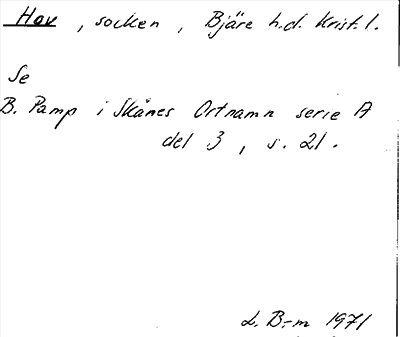 Hov, socken, Bjäre h.d. Krist. l.
Se
B. Pamp i Skånes Ortnamn serie A
del 3, s. 21.
L. B-m 1971